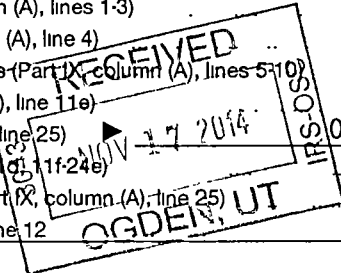 (A), lines 1-3)
(A), line 4)
(Part IX, column (A), lines 5-10)
), line 11e)
line 25)
11f-24e)
IX, column (A), line 25)
12
RECEIVED
NOV 17 2014
IRS-OSC
OGDEN, UT